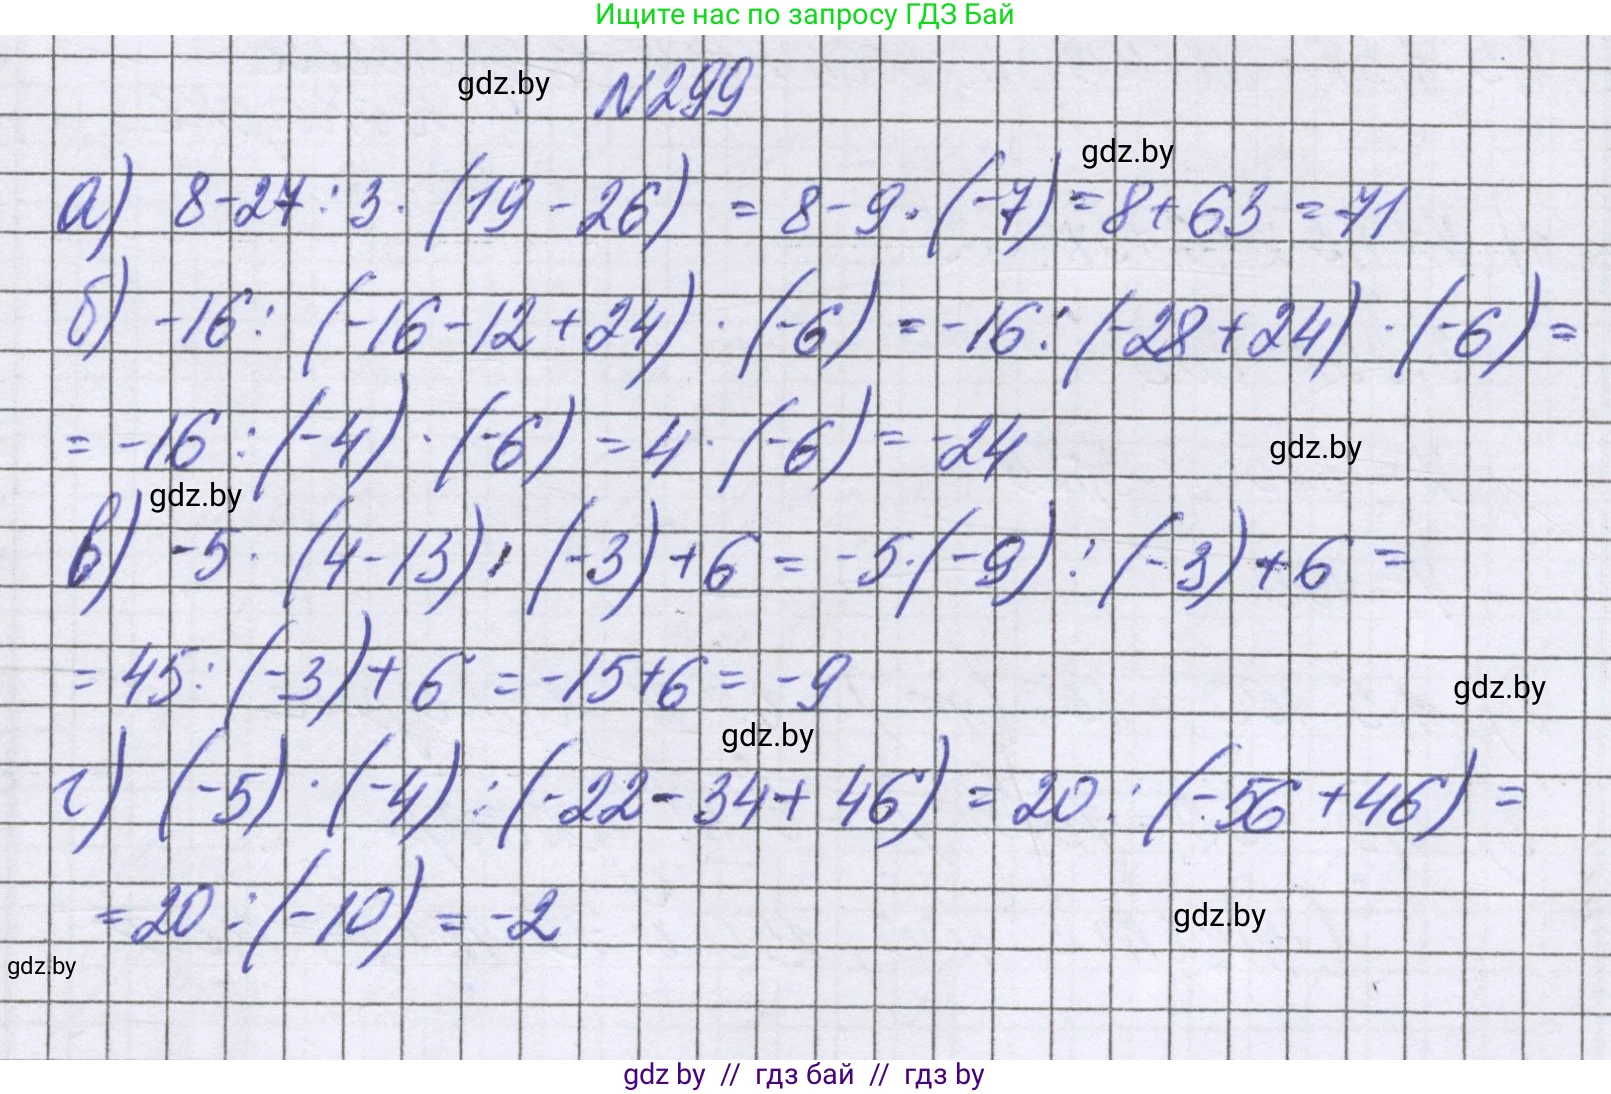 Ищите нас по запросу ГДЗ Бай
gdz.by
N299
gdz.by
а) 8-27:3·(19-26) = 8-9·(-7)=8+63=71
б) -16:(-16-12+24)·(-6)=-16:(-28+24)·(-6)=
=-16:(-4)·(-6)=4·(-6)=-24
gdz.by
gdz.by
в) -5·(4-13):(-3)+6=-5·(-9):(-3)+6=
=45:(-3)+6=-15+6=-9
gdz.by
gdz.by
г) (-5)·(-4):(-22-34+46)=20:(-56+46)=
=20:(-10)=-2
gdz.by
gdz.by
gdz by // гдз бай // гдз by